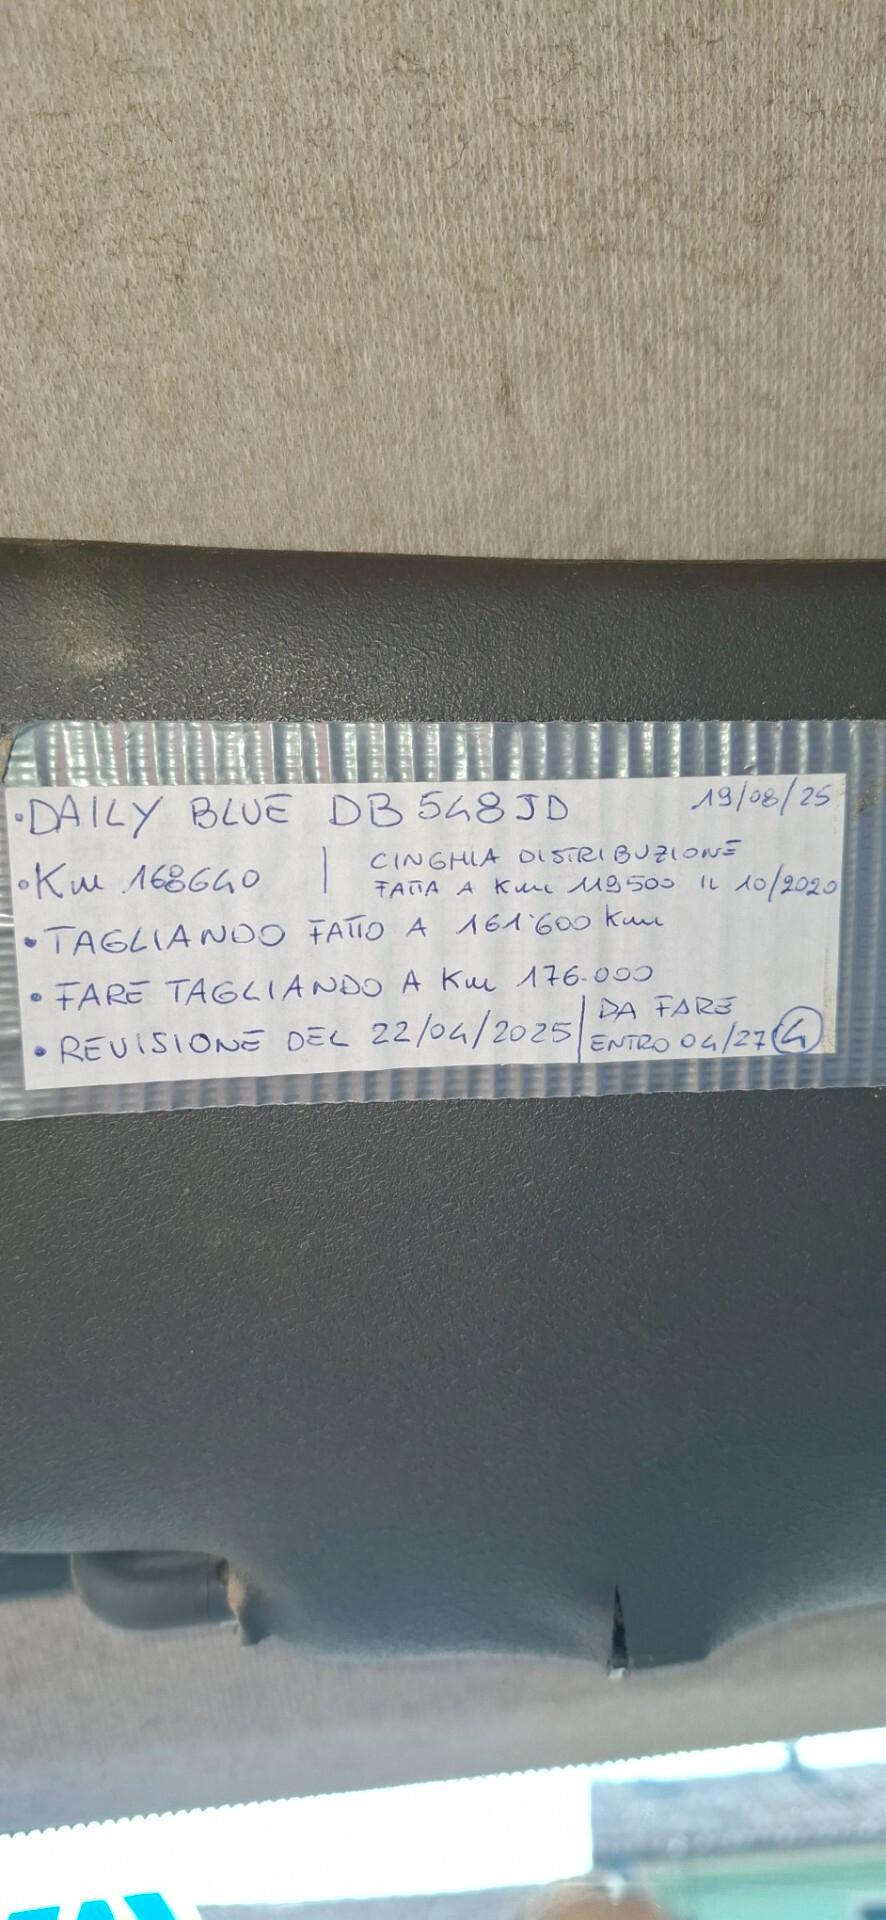 • DAILY BLUE DB548JD 19/08/25
• Km 168640 | CINGHIA DISTRIBUZIONE
FATTA A Km 119500 IL 10/2020
• TAGLIANDO FATTO A 161'600 Km
• FARE TAGLIANDO A Km 176.000
• REVISIONE DEL 22/04/2025 | DA FARE
ENTRO 04/27 4